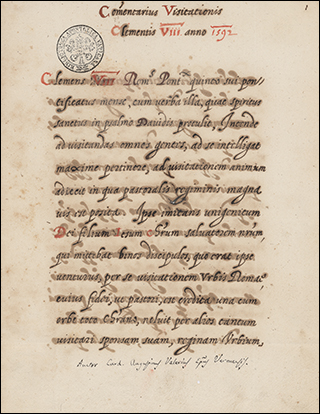 Comentarius Visitationis
Clementis VIII anno 1592
1
Clemens Rom. Pont. quinto sui pon-
tificatus mense, cum verba illa, quae spiritus
sanctus in psalmo Davidis protulit,
ad visitandas omnes gentes, ad se intelligat
maxime pertinere, ad visitationem animum
adiecit in qua pastoralis regiminis magna
vis est posita. Ipse imitans unigenitum
Dei filium salvatorem nrum
qui mittebat binos discipulos, quo erat ipse
venturus, per se visitationem Urbis Romae
cuius fidei, ut pastori, est credita una cum
orbe toto noluit per alios tantum
visitari sponsam suam, reginam Urbium,
Auctor Card. Augustinus Valerius Epus Veronensis.